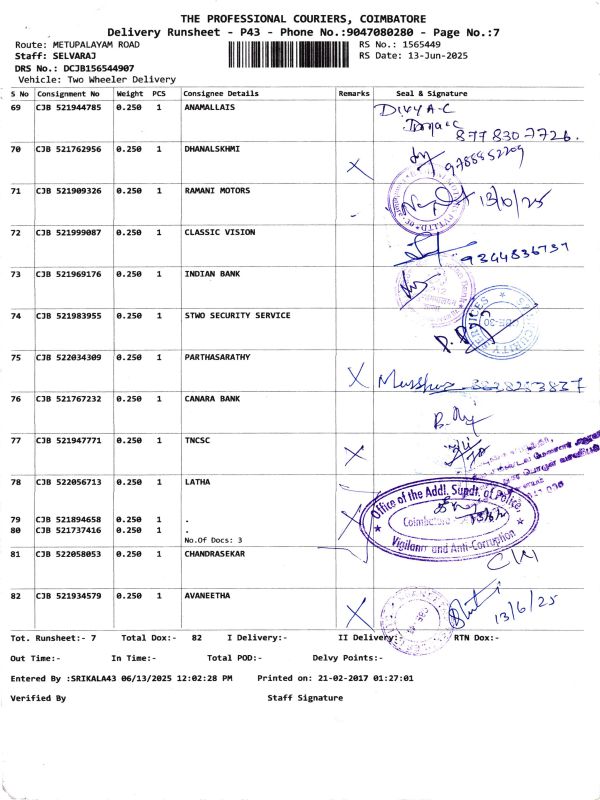 THE PROFESSIONAL COURIERS, COIMBATORE
Delivery Runsheet - P43 - Phone No.:9047080280 - Page No.:7
Route: METUPALAYAM ROAD
RS No.: 1565449
Staff: SELVARAJ
RS Date: 13-Jun-2025
DRS No.: DCJB156544907
Vehicle: Two Wheeler Delivery
S No Consignment No Weight PCS Consignee Details Remarks Seal & Signature
69 CJB 521944785 0.250 1 ANAMALLAIS DIVYA-C
8778307726.
70 CJB 521762956 0.250 1 DHANALSKHMI 9788952209
71 CJB 521909326 0.250 1 RAMANI MOTORS 13/6/25
72 CJB 521999087 0.250 1 CLASSIC VISION 9344836737
73 CJB 521969176 0.250 1 INDIAN BANK
74 CJB 521983955 0.250 1 STWO SECURITY SERVICE
75 CJB 522034309 0.250 1 PARTHASARATHY
76 CJB 521767232 0.250 1 CANARA BANK
77 CJB 521947771 0.250 1 TNCSC
78 CJB 522056713 0.250 1 LATHA
Office of the Addl. Supdt. of Police,
Coimbatore
Vigilance and Anti-Corruption
79 CJB 521894658 0.250 1 .
80 CJB 521737416 0.250 1 .
No.Of Docs: 3
81 CJB 522058053 0.250 1 CHANDRASEKAR
82 CJB 521934579 0.250 1 AVANEETHA 13/6/25
Tot. Runsheet:- 7 Total Dox:- 82 I Delivery:- II Delivery:- RTN Dox:-
Out Time:- In Time:- Total POD:- Delvy Points:-
Entered By :SRIKALA43 06/13/2025 12:02:28 PM Printed on: 21-02-2017 01:27:01
Verified By Staff Signature